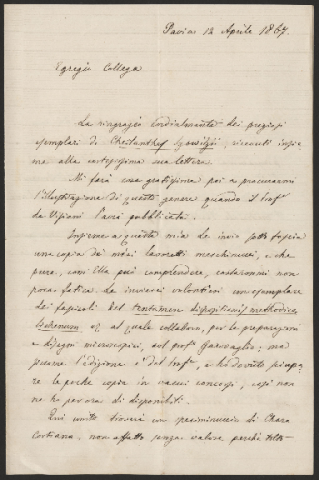 Pavia 12 Aprile 1867.
Egregio Collega
La ringrazio cordialmente dei pregiati
esemplari di ricevuti insie-
me alla sua lettera.
Mi farà cosa gratissima poi a procurarmi
l'illustrazione di questo genere quando il Prof.
de Visiani l'avrà pubblicata.
Insieme a questa mia Le invio sotto fascia
una copia de' miei lavoretti meschinucci, e che
pure, com' Ella può comprendere, costaronmi non
poca fatica. Le invierei volontieri un esemplare
dei fascicoli del Tentamen dispositionis methodicae
Lichenum al quale collaboro, per le preparazioni
e disegni microscopici, col prof. Garovaglio; ma
siccome l'edizione è del Prof., e ho dovuto
re le poche copie in così non
ne ho per ora di disponibili.
Qui unito troverà un di Chara
non affatto senza valore perchè